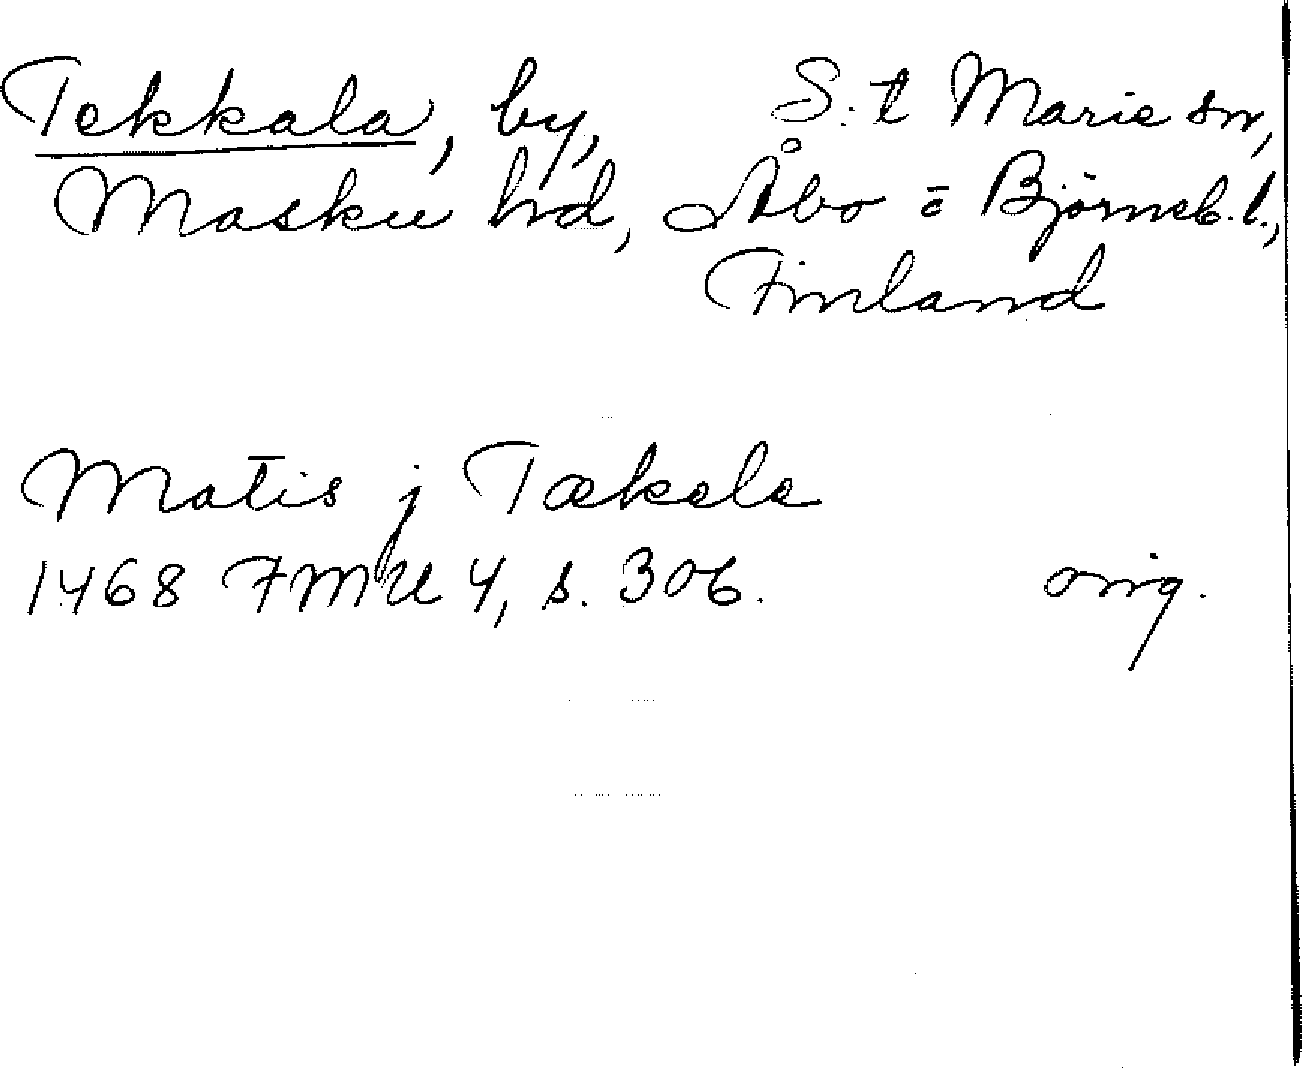 Tekkala, by, S:t Marie sn,
Masku hd, Åbo = Björneb. l.,
Finland
Matis j Tækala
1468 FMU 4, s. 306. orig.